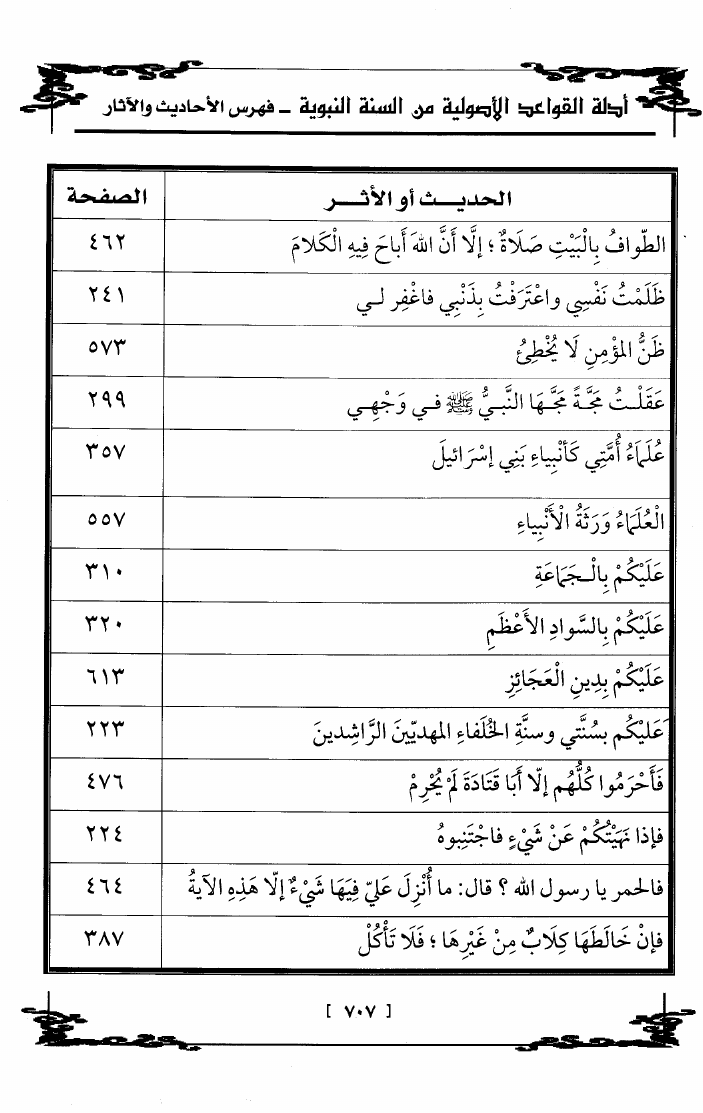 أدلة القواعد الأصولية من السنة النبوية ـ فهرس الأحاديث والآثار
الحديث أو الأثر الصفحة
الطّوافُ بِالْبَيْتِ صَلَاةٌ ؛ إلَّا أَنَّ اللهَ أَباحَ فِيهِ الْكَلامَ ٤٦٢
ظَلَمْتُ نَفْسِي واعْتَرَفْتُ بِذَنْبِي فاغْفِر لي ٢٤١
ظَنُّ المؤْمِنِ لَا يُخْطِئُ ٥٧٣
عَقَلْتُ مَجَّةً مَجَّهَا النَّبِيُّ ﷺ في وَجْهِي ٢٩٩
عُلَمَاءُ أُمَّتِي كَأَنْبِياءِ بَنِي إسْرَائيلَ ٣٥٧
الْعُلَمَاءُ وَرَثَةُ الْأَنْبِياءِ ٥٥٧
عَلَيْكُمْ بِالْجَمَاعَةِ ٣١٠
عَلَيْكُمْ بِالسَّوادِ الأَعْظَمِ ٣٢٠
عَلَيْكُمْ بِدِينِ الْعَجَائِزِ ٦١٣
عَلَيْكُم بسُنَّتي وسنَّةِ الخُلَفاءِ المهديّينَ الرَّاشِدينَ ٢٢٣
فَأَحْرَمُوا كُلُّهُم إلّا أَبَا قَتَادَةَ لَمْ يُحْرِمْ ٤٧٦
فإذا نَهَيْتُكُمْ عَنْ شَيْءٍ فاجْتَنِبوهُ ٢٢٤
فالحمر يا رسول الله ؟ قال: ما أُنْزِلَ عَليّ فِيَهَا شَيْءٌ إلّا هَذِهِ الآيةُ ٤٦٤
فإنْ خَالَطَهَا كِلَابٌ مِنْ غَيْرِهَا ؛ فَلَا تَأْكُلْ ٣٨٧
[ ٧٠٧ ]